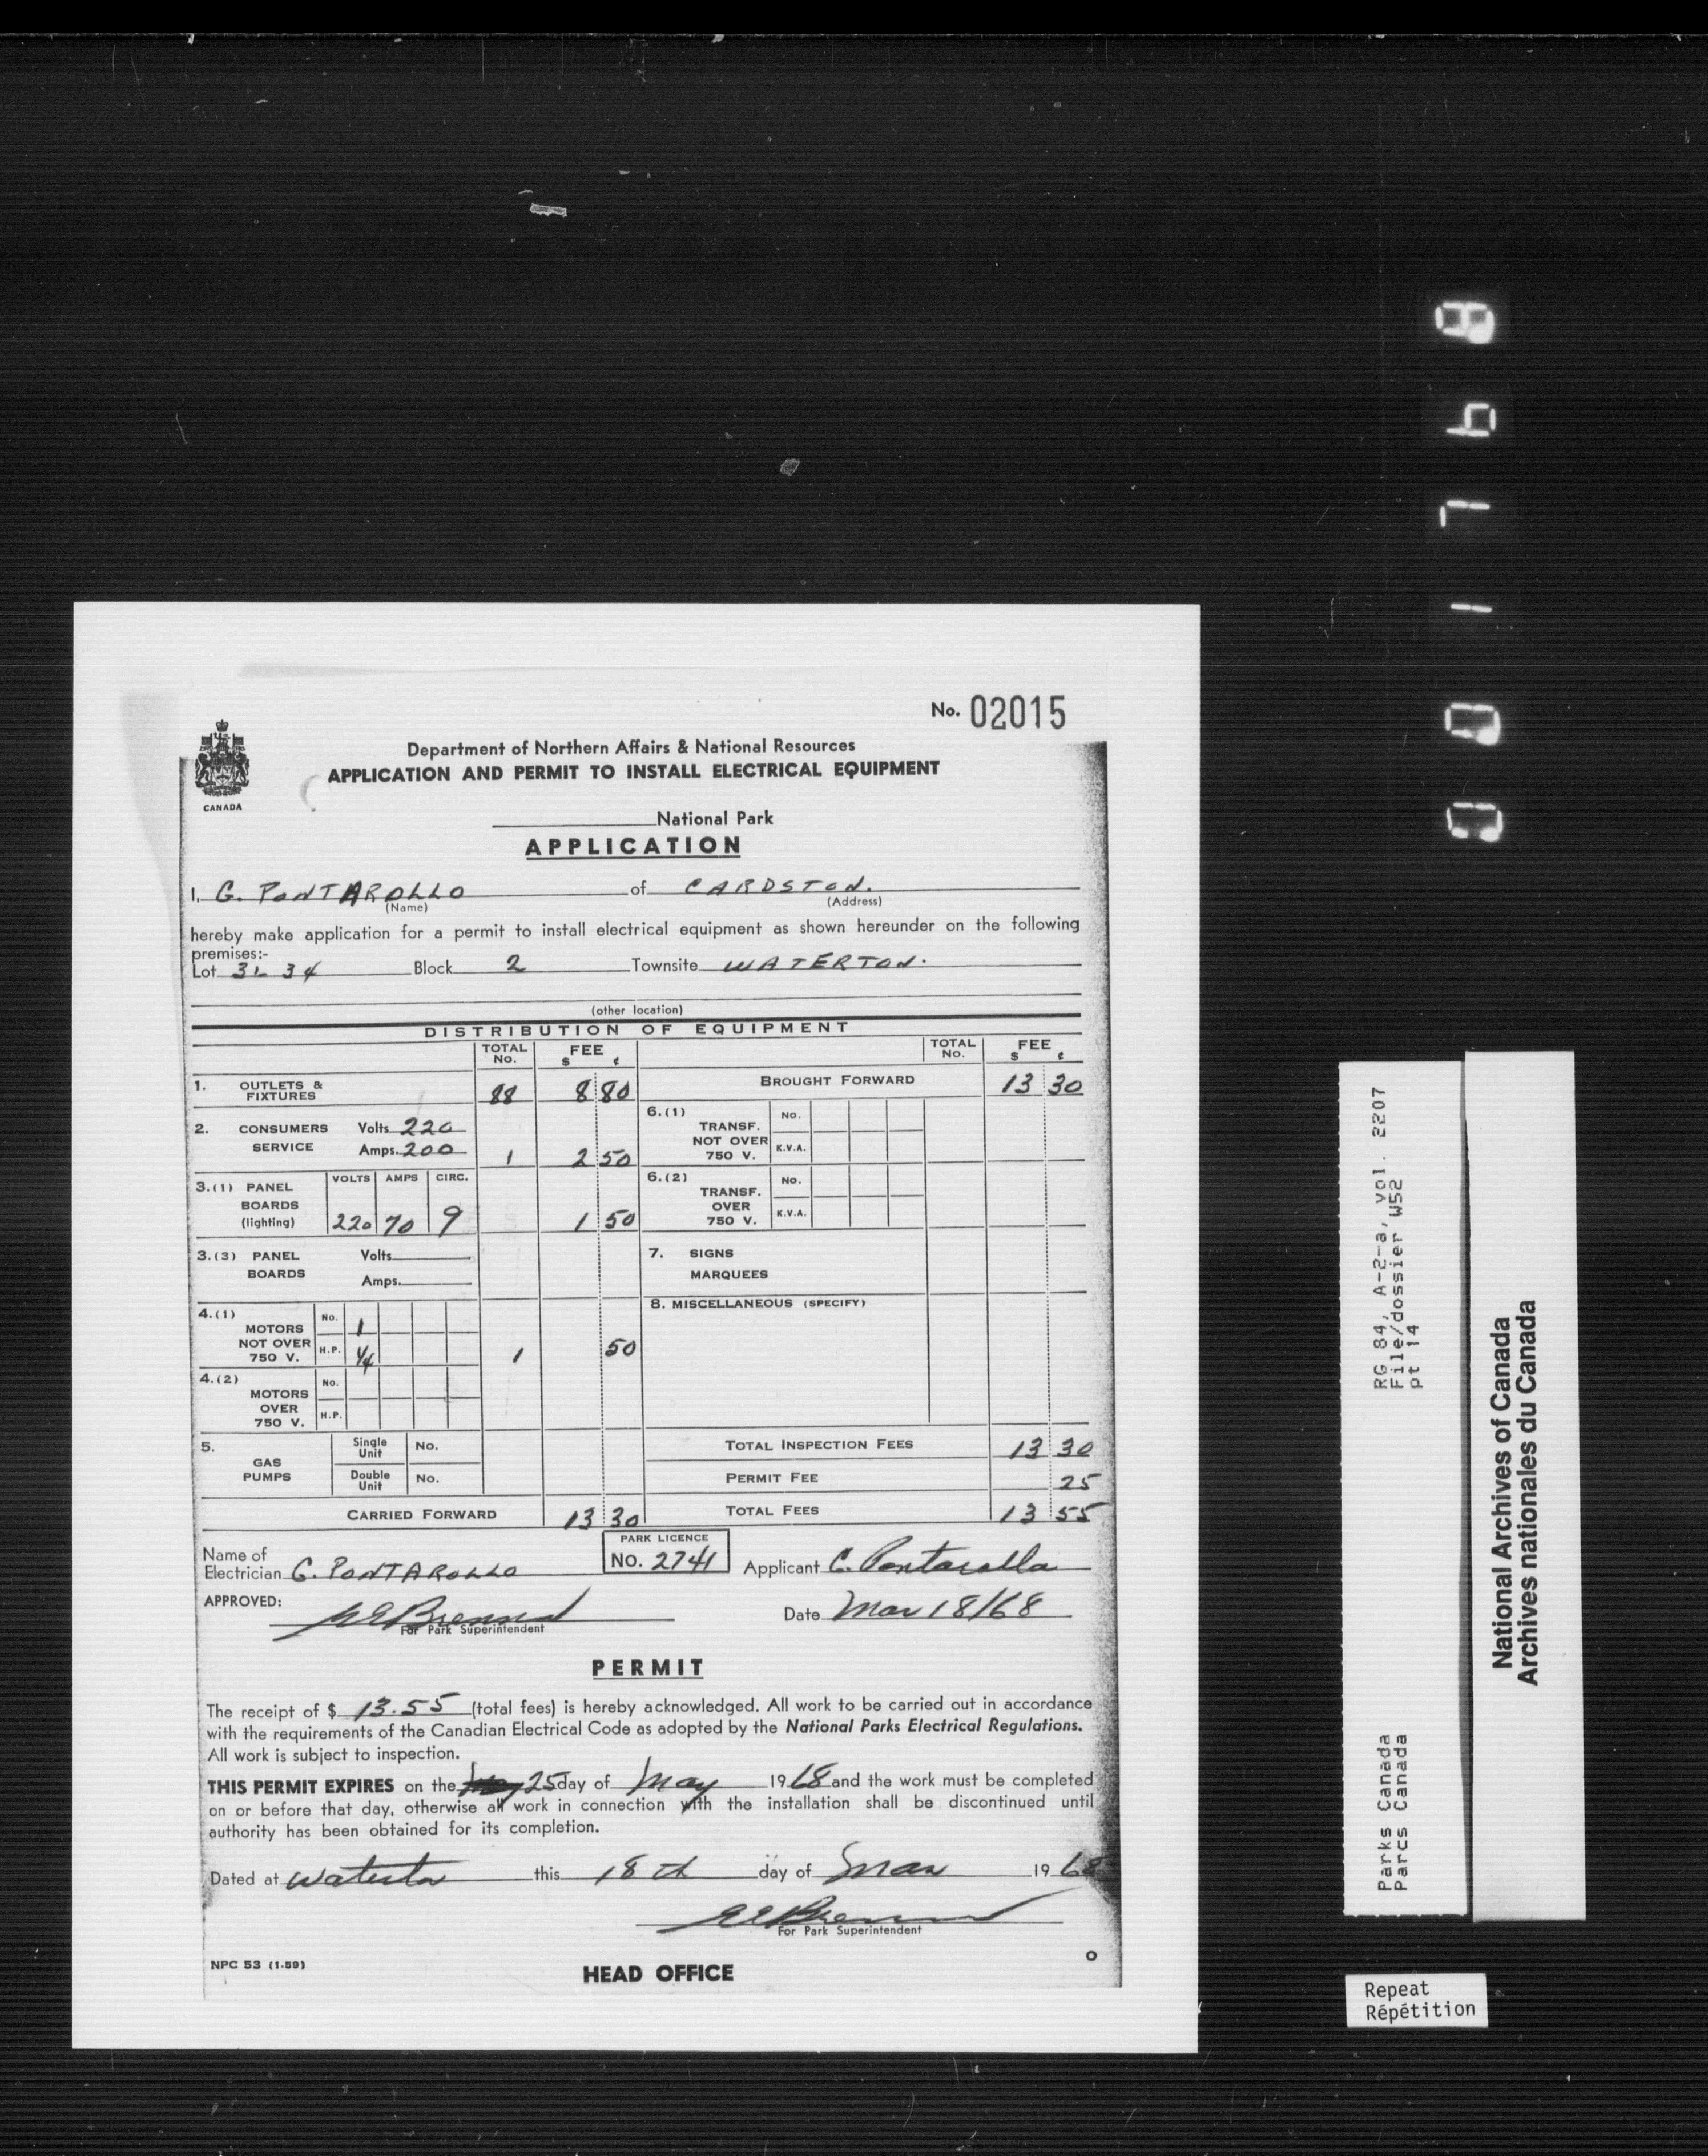 No. 02015
Department of Northern Affairs & National Resources
APPLICATION AND PERMIT TO INSTALL ELECTRICAL EQUIPMENT
CANADA
National Park
APPLICATION
I, G. PONTAROLLO of CARDSTON.
(Name) (Address)
hereby make application for a permit to install electrical equipment as shown hereunder on the following
premises:-
Lot 34 Block 2 Townsite WATERTON.
(other location)
DISTRIBUTION OF EQUIPMENT
TOTAL No. FEE $ ¢ TOTAL No. FEE $ ¢
1. OUTLETS & FIXTURES 88 8 80
BROUGHT FORWARD 13 30
2. CONSUMERS SERVICE Volts 220 Amps. 200 1 2 50
6.(1) TRANSF. NOT OVER 750 V. No. K.V.A.
3.(1) PANEL BOARDS (lighting) VOLTS AMPS CIRC. 220 70 9 1 50
6.(2) TRANSF. OVER 750 V. No. K.V.A.
3.(3) PANEL BOARDS Volts Amps.
7. SIGNS MARQUEES
4.(1) MOTORS NOT OVER 750 V. No. 1 H.P. 1/4 1 50
8. MISCELLANEOUS (SPECIFY)
4.(2) MOTORS OVER 750 V. No. H.P.
5. GAS PUMPS Single Unit No. Double Unit No.
TOTAL INSPECTION FEES 13 30
PERMIT FEE 25
CARRIED FORWARD 13 30
TOTAL FEES 13 55
Name of
Electrician G. PONTAROLLO PARK LICENCE NO. 2741 Applicant G. Pontarollo
APPROVED:
For Park Superintendent
Date Mar 18/68
PERMIT
The receipt of $ 13.55 (total fees) is hereby acknowledged. All work to be carried out in accordance
with the requirements of the Canadian Electrical Code as adopted by the National Parks Electrical Regulations.
All work is subject to inspection.
THIS PERMIT EXPIRES on the 25 day of May 1968 and the work must be completed
on or before that day, otherwise all work in connection with the installation shall be discontinued until
authority has been obtained for its completion.
Dated at Waterton this 18th day of Mar 1968
For Park Superintendent
NPC 53 (1-59)
HEAD OFFICE
RG 84, A-2-a, vol. 2207
File/dossier W52
pt 14
Parks Canada
Parcs Canada
National Archives of Canada
Archives nationales du Canada
Repeat
Répétition